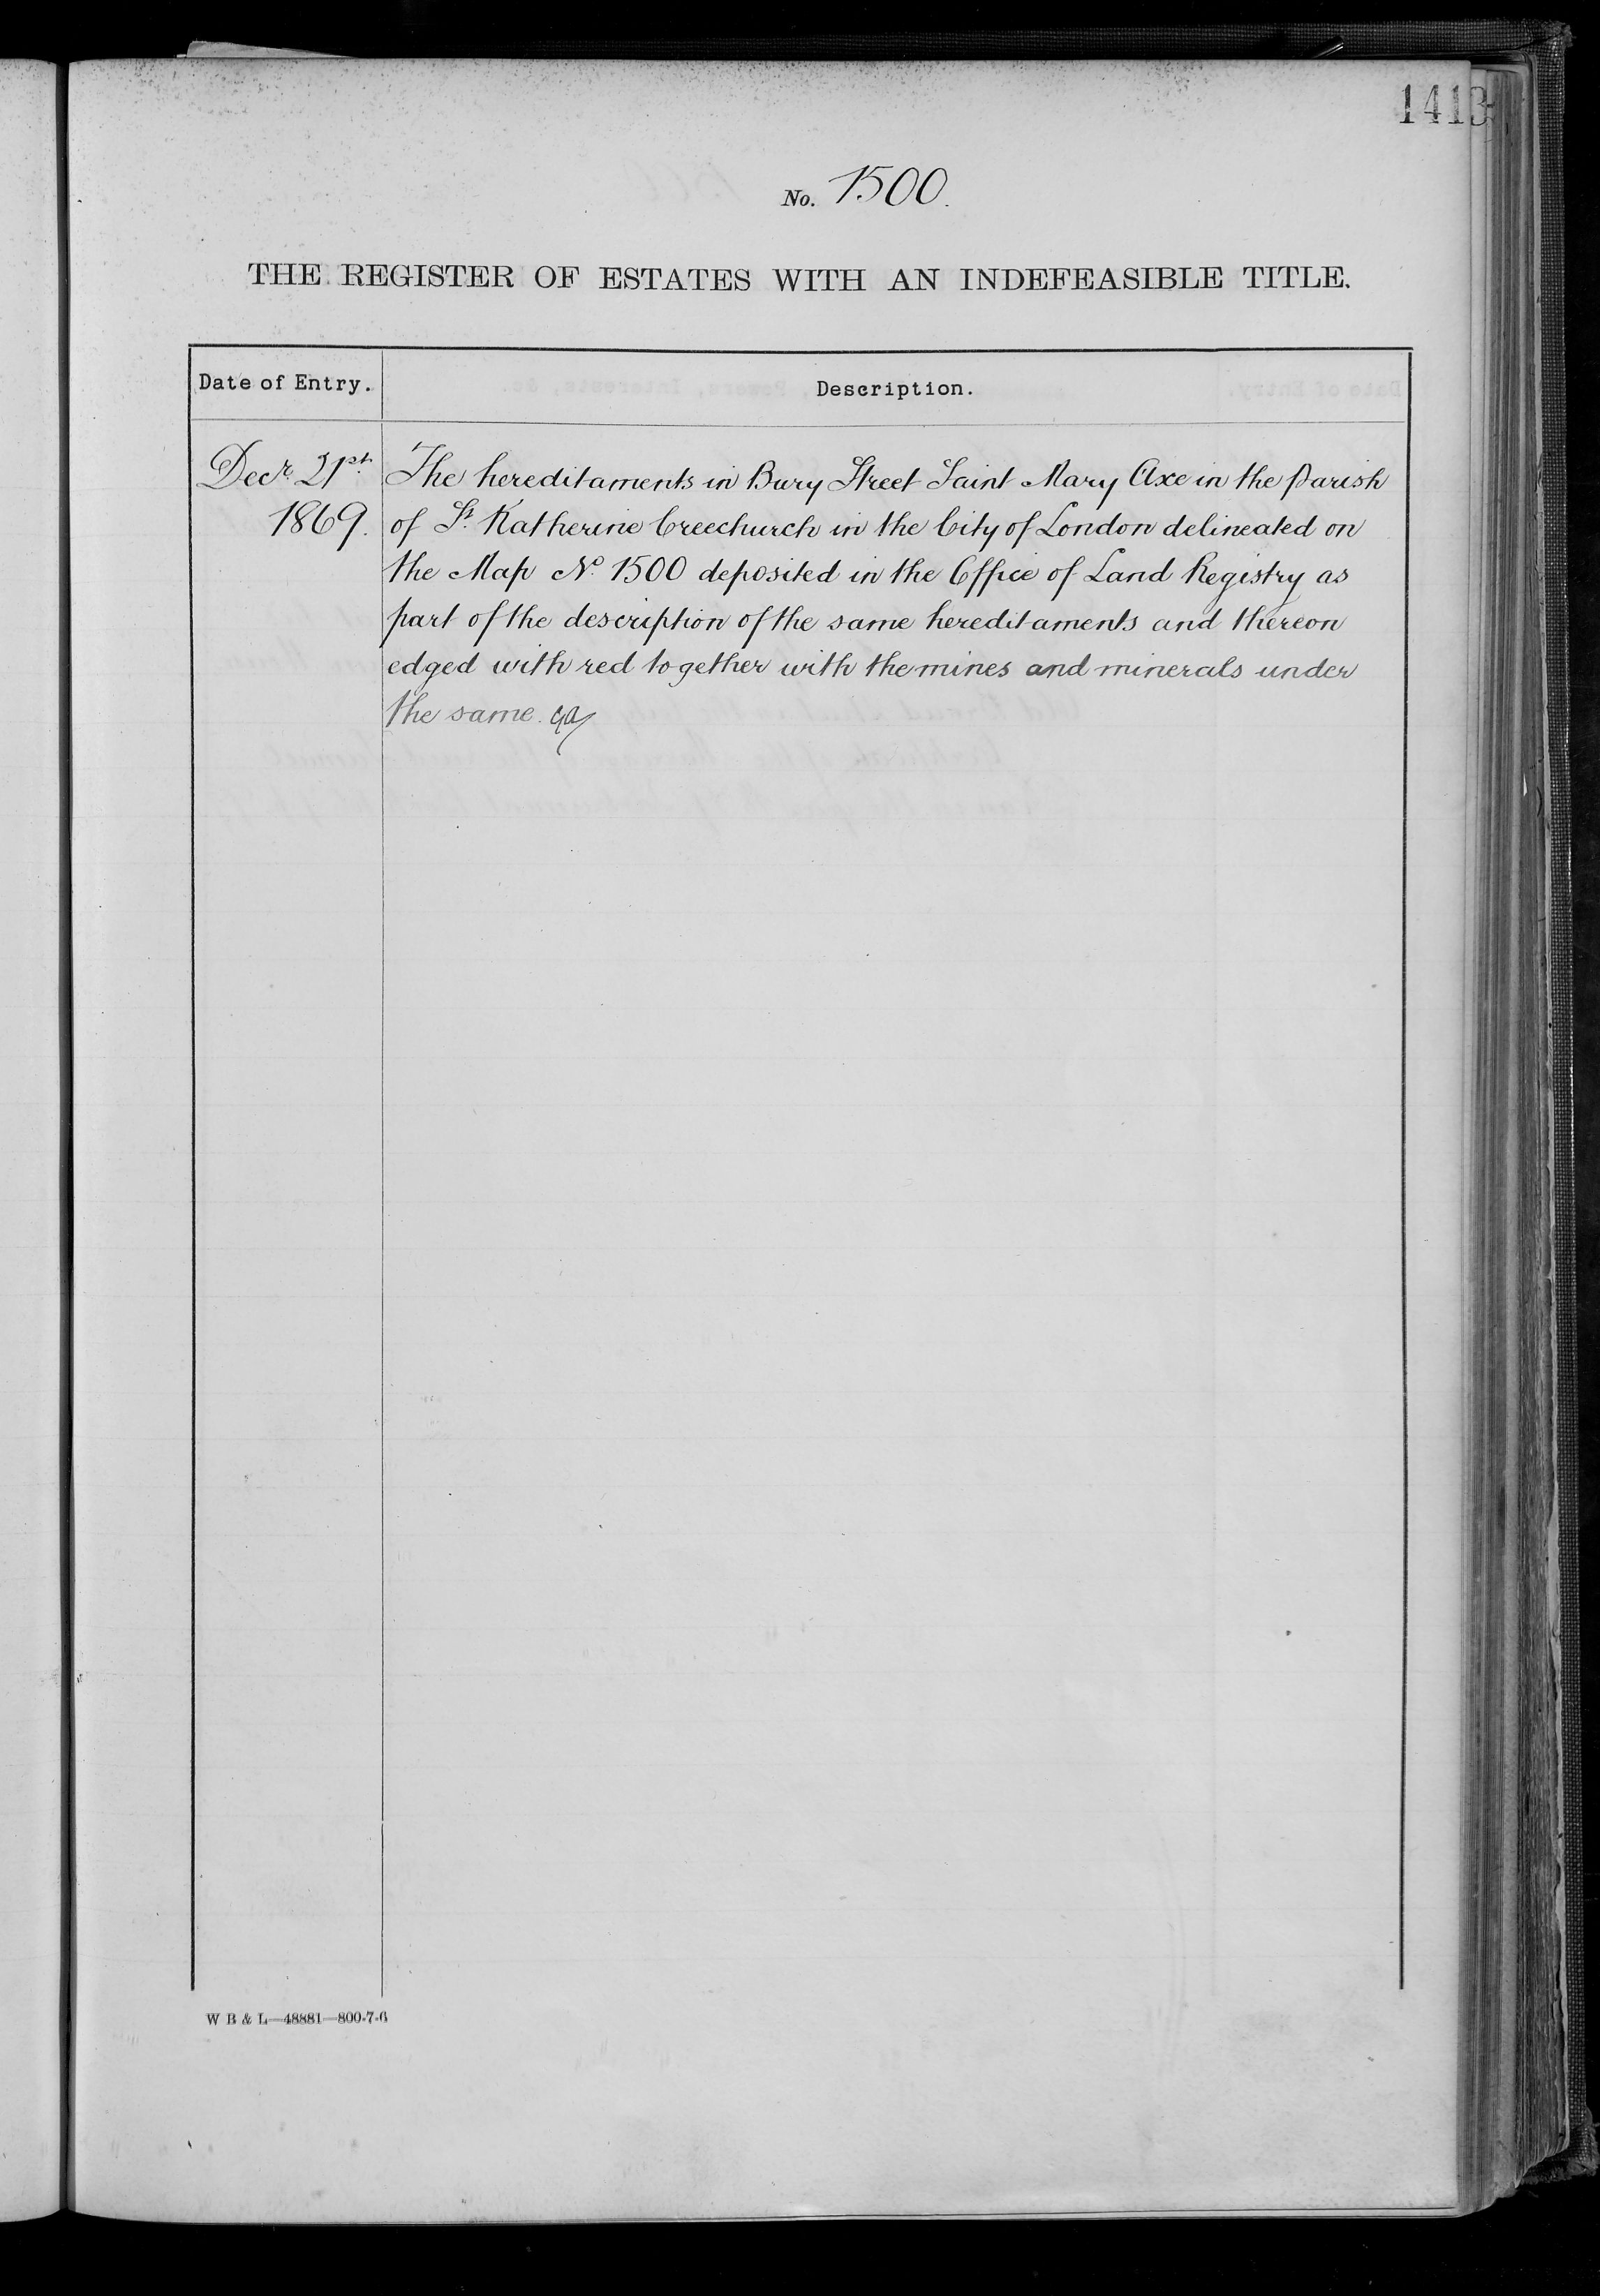 1413
No. 1500.
THE REGISTER OF ESTATES WITH AN INDEFEASIBLE TITLE.
Date of Entry. Description.
Decr. 21st. The hereditaments in Bury Street Saint Mary Axe in the Parish
1869. of St. Katherine Creechurch in the City of London delineated on
the Map No. 1500 deposited in the Office of Land Registry as
part of the description of the same hereditaments and thereon
edged with red together with the mines and minerals under
the same.
W B & L—48881—800-7-6